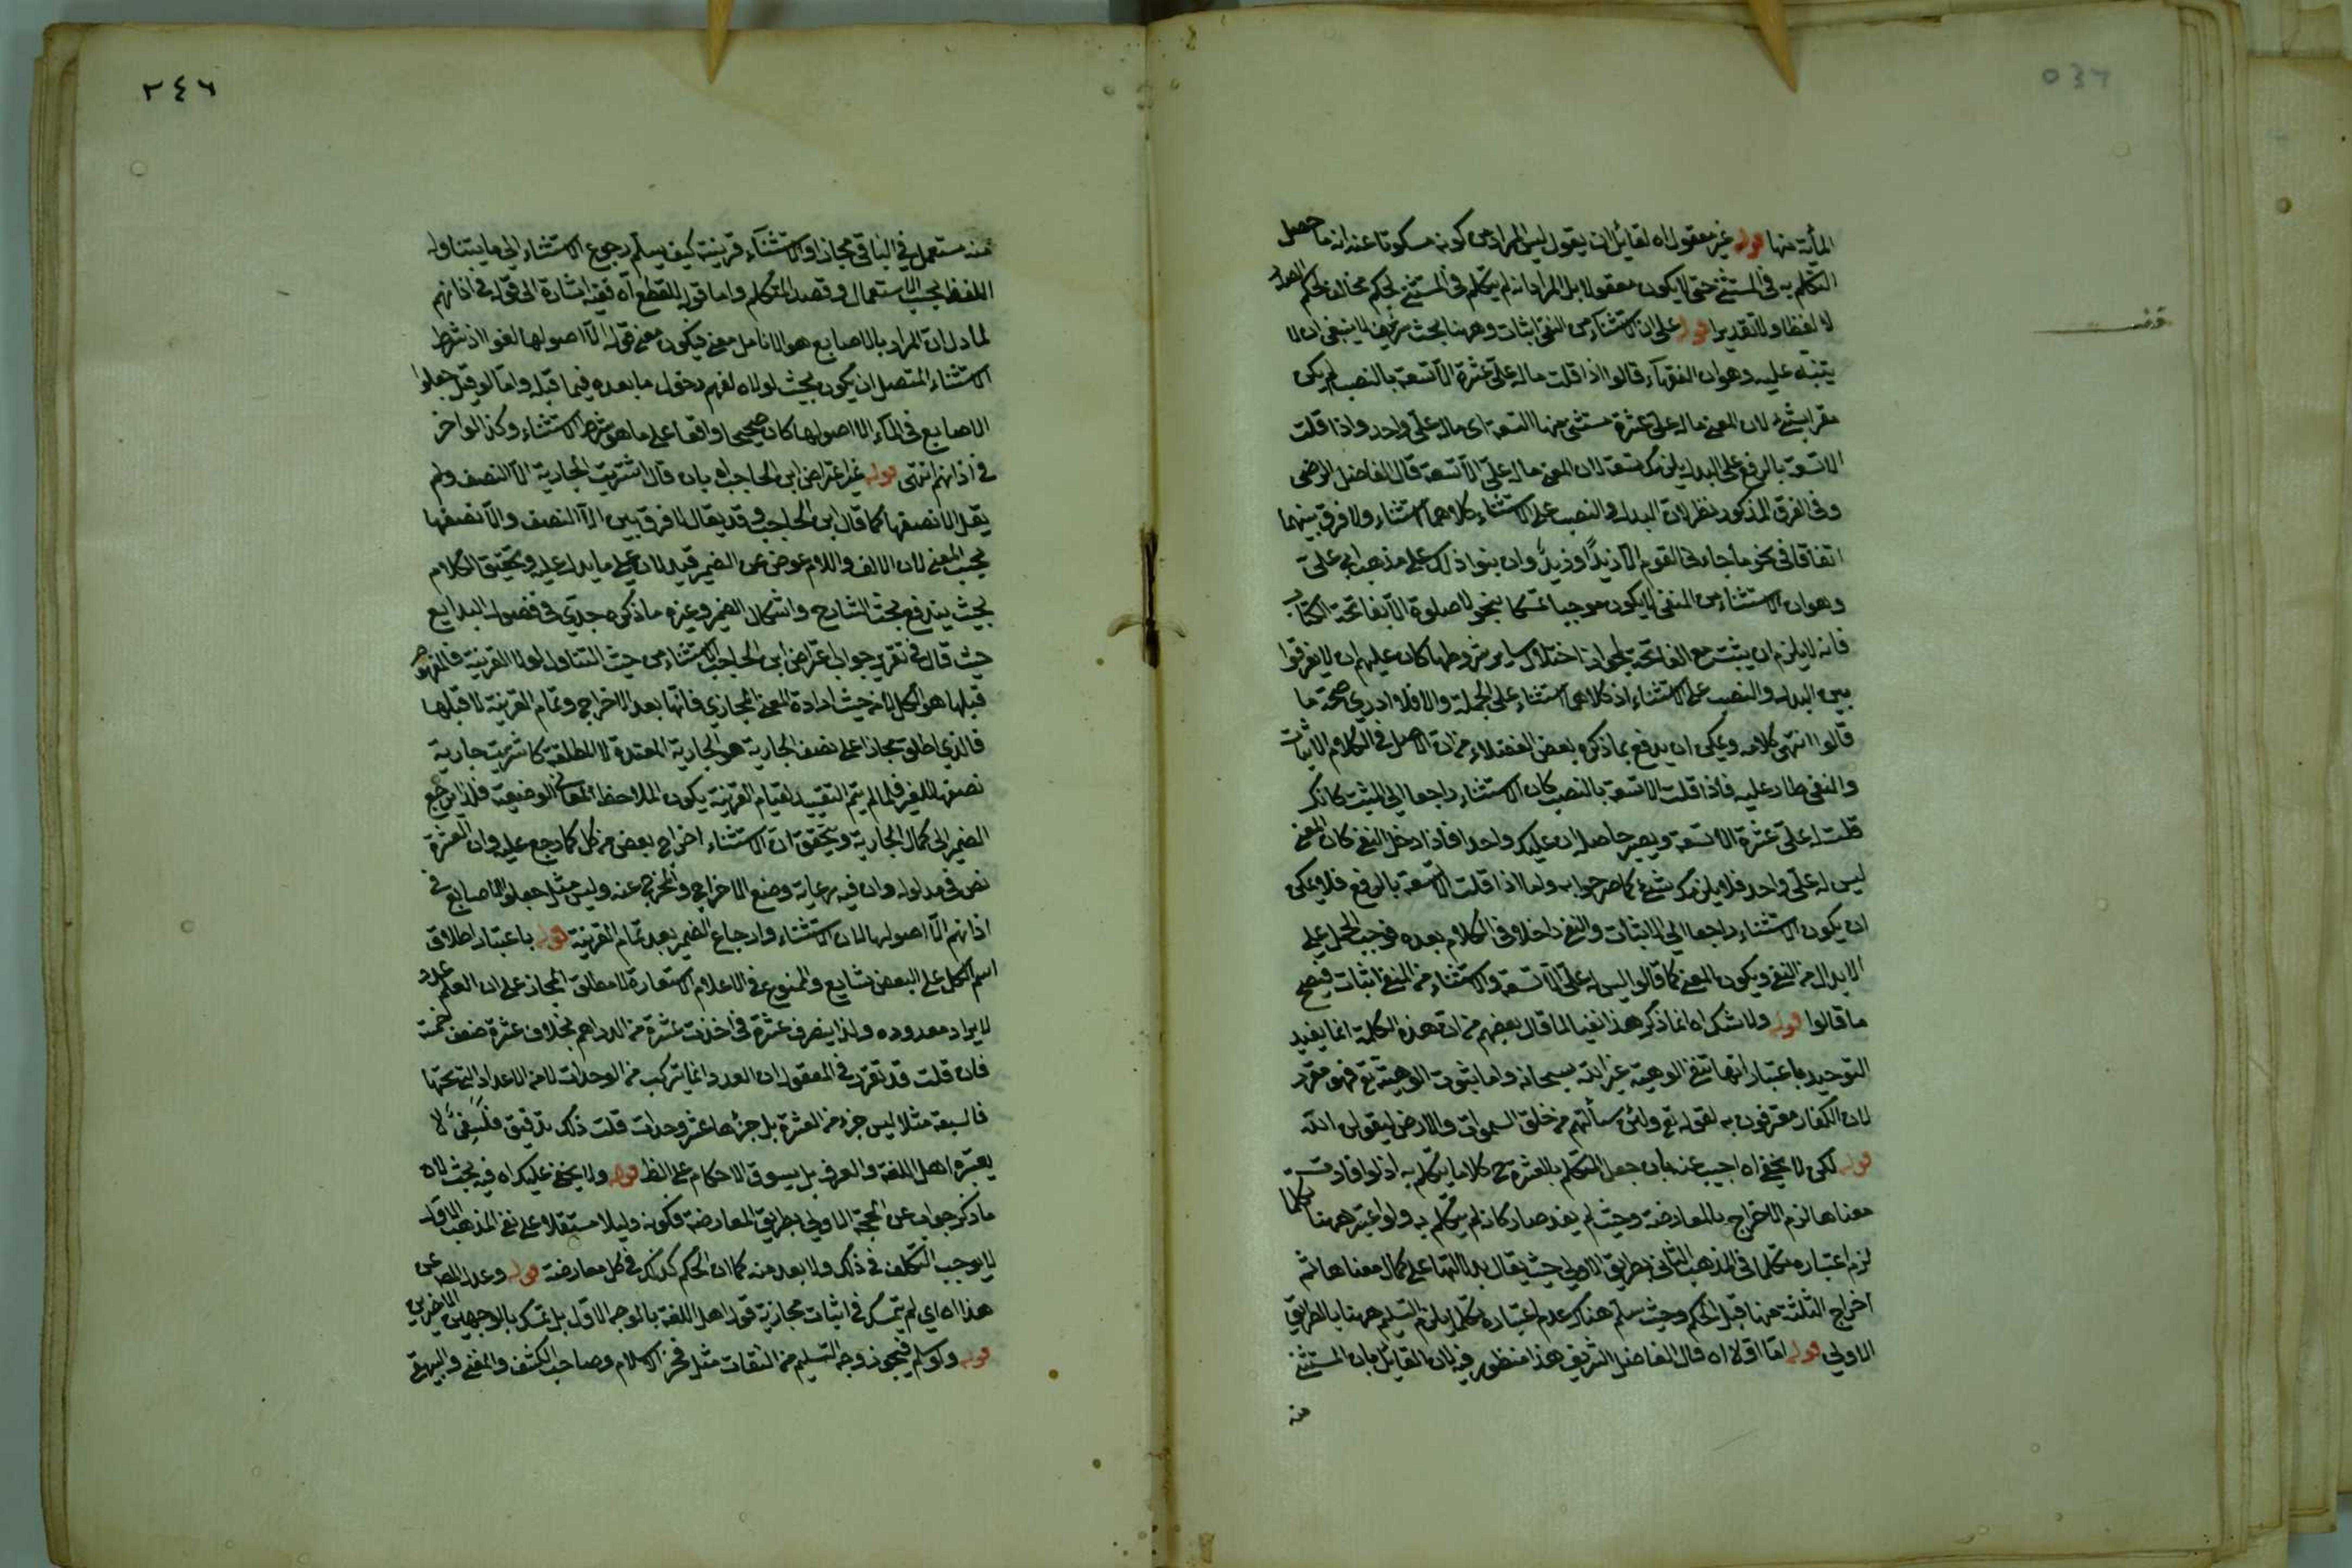 المأية منها قوله غير معقول اه لقائل ان يقول ليس المراد من كونه مسكوتا عنه انه ما حصل
التكلم به في المستثنى حتى لا يكون معقولا بل المراد انه لم يتكلم في المستثنى بحكم مخالف لحكم الصدر
لا لفظا ولا تقديرا قوله على ان الاستثناء من النفي اثبات وههنا بحث شريف لا ينبغي ان لا
يتنبه عليه وهو ان الفقهاء قالوا اذا قلت ماله علي عشرة الا تسعة بالنصب لم يكن
مقرا بشئ لان المعنى ماله علي عشرة مستثنى منها التسعة اى ماله علي واحد واذا قلت
الا تسعة بالرفع على البدل يلزمك تسعة لان المعنى ماله علي الا تسعة قال الفاضل الرضى
وفى الفرق المذكور نظر لان البدل والنصب على الاستثناء كلاهما استثناء ولا فرق بينهما
اتفاقا فى نحو ما جاءنى القوم الا زيدًا وزيدٌ وان بنوا ذلك على مذهب ابى على
وهو ان الاستثناء من المنفى لا يكون موجبا تمسكا بنحو لا صلوة الا بفاتحة الكتاب
فانه لا يلزم ان يثبت مع الفاتحة لجواز اختلال ساير شروطها كان عليهم ان لا يفرقوا
بين البدل والنصب على الاستثناء اذ كلاهما استثناء على الجملة والا فلا ادرى صحة ما
قالوا انتهى كلامه ويمكن ان يدفع بما ذكره بعض الفضلاء من ان الاصل فى الكلام الاثبات
والنفى طار عليه فاذا قلت الا تسعة بالنصب كان الاستثناء راجعا الى المثبت كانك
قلت له علي عشرة الا تسعة ويصير حاصله ان عليك واحدا فاذا دخل النفى كان المعنى
ليس له علي واحد فلا يلزمك شئ كما صرحوا به واما اذا قلت الا تسعة بالرفع فلا يمكن
ان يكون الاستثناء راجعا الى الاثبات والنفى داخلا فى الكلام بعده فوجب الحمل على
الابدال من النفى ويكون المعنى كما قالوا ليس له علي الا تسعة والاستثناء من المنفى اثبات فيصح
ما قالوا قوله ولا شك اه انما ذكر هذا نفيا لما قال بعضهم من ان هذه الكلمة انما يفيد
التوحيد باعتبار انها تنفى الوهية غير الله سبحانه واما ثبوت الوهيته تع فهو مقرر
لان الكفار معترفون به لقوله تع ولئن سألتهم من خلق السموات والارض ليقولن الله
قوله لكن لا يخفى اه اجيب عنه بان جعل التكلم بالعشرة ح كلاما يتكلم به اذ لو افادت
معناها لزم الاخراج بالمعارضة وحيث لم يفد صار كانه لم يتكلم به ولو اعتبر ههنا تكلما
لزم اعتباره متكلما فى المذهب الثانى بطريق الاولى حيث يقال بدلالتها على كمال معناها ثم
اخراج الثلثة عنها قبل الحكم وحيث سلم هناك عدم اعتباره تكلما يلزم التسليم ههنا بالطريق
الاولى قوله اما اولا اه قال الفاضل الشريف هذا منظور فيه لان القائل بان المستثنى
منه
٢٤٦
منه مستعمل فى الباقى مجازا والاستثناء قرينة كيف يسلم رجوع الاستثناء الى ما يتناوله
اللفظ بحسب الاستعمال وقصد المتكلم واما قوله للقطع اه ففيه اشارة الى قوله فى اذانهم
لما دل ان المراد بالاصابع هو الانامل معنى فيكون معنى قوله الا اصولها لغوا اذ شرط
الاستثناء المتصل ان يكون بحيث لولاه لفهم دخول ما بعده فيما قبله واما لو قيل جعلوا
الاصابع فى الماء الا اصولها كان صحيحا واقعا على ما هو شرط الاستثناء وكذا لو اخر
فى اذانهم انتهى قوله غير اعتراض ابن الحاجب اه بان قال اشتريت الجارية الا النصف ولم
يقل الا نصفها كما قال ابن الحاجب وقد يقال لا فرق بين الا النصف والا نصفها
بحسب المعنى لان الالف واللام عوض عن الضمير قيد لان على ما يدل عليه وتحقيق الكلام
بحيث يندفع بحث الشارح واشكال الضمير وغيره ما ذكره جدى فى فصول البدايع
حيث قال فى تقرير جواب اعتراض ابن الحاجب الاستثناء من حيث التناول لولا القرينة فالمفهوم
قبلها هو الكل لا من حيث ارادة المعنى المجازى فانها بعد الاخراج وتمام القرينة لا قبلها
فالذى اطلق مجازا على نصف الجارية هو الجارية المقيدة لا المطلقة كاشتريت جارية
نصفها للغير فلما لم يتم التقييد لقيام القرينة يكون الملاحظ المعانى الوضعية فلذا يرجع
الضمير الى كمال الجارية ويتحقق ان الاستثناء اخراج بعض من كل كما رجع عليه وان العشرة
نص فى مدلوله وان فيه رعاية وضع الاخراج والمخرج عنه وليس مثل جعلوا الاصابع فى
اذانهم الا اصولها لان الاستثناء وارجاع الضمير بعد تمام القرينة قوله باعتبار اطلاق
اسم الكل على البعض شايع والممنوع فى الاعلام الاستعارة لا مطلق المجاز على ان العلم عدد
لا يراد معدوده ولذا ينصرف عشرة فى اخذت عشرة من الدراهم بخلاف عشرة ضعف خمسة
فان قلت قد تقرر فى المعقول ان العدد انما يتركب من الوحدات لا من الاعداد التى تحتها
فالسبعة مثلا ليس جزء من العشرة بل جزءها عشر وحدات قلت ذلك تدقيق فلسفىّ لا
يعتبره اهل اللغة والعرف بل يسوق الاحكام على الظ قوله ولا يخفى عليك اه فيه بحث لان
ما ذكر جواب عن الحجة الاولى بطريق المعارضة فكونه دليلا مستقلا على نفى المذهب الاول
لا يوجب التكلف فى ذلك ولا بعد منه كما ان الحكم كذلك فى كل معارضة قوله وعدل المص عن
هذا اه اى لم يتمسك فى اثبات مجازية قول اهل اللغة بالوجه الاول بل تمسك بالوجهين الاخيرين
قوله ولو سلم فيجوز وجه التسليم من الثقات مثل فخر الاسلام وصاحب الكشف والمغنى والبيهقى